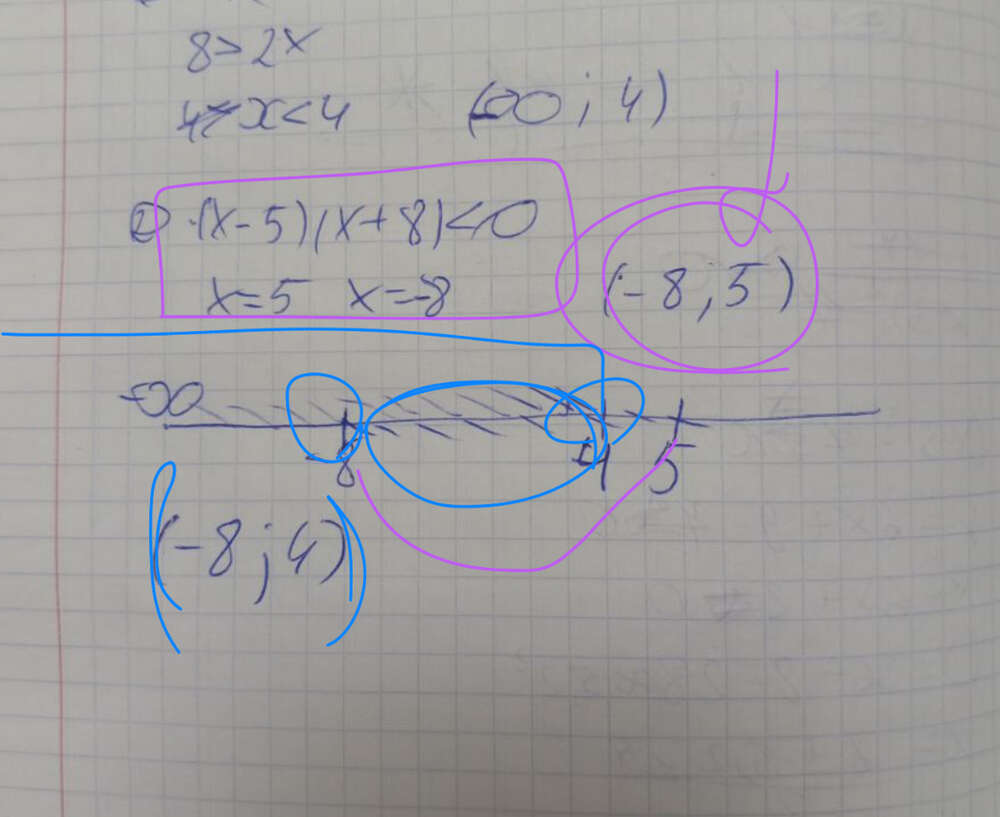 8>2x
x<4 (-∞; 4)
② (x-5)(x+8)<0
x=5 x=-8 (-8; 5)
-∞
-8 4 5
(-8; 4)